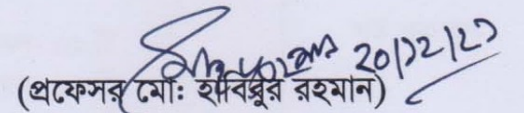 20/12/23
(প্রফেসর মোঃ হাবিবুর রহমান)